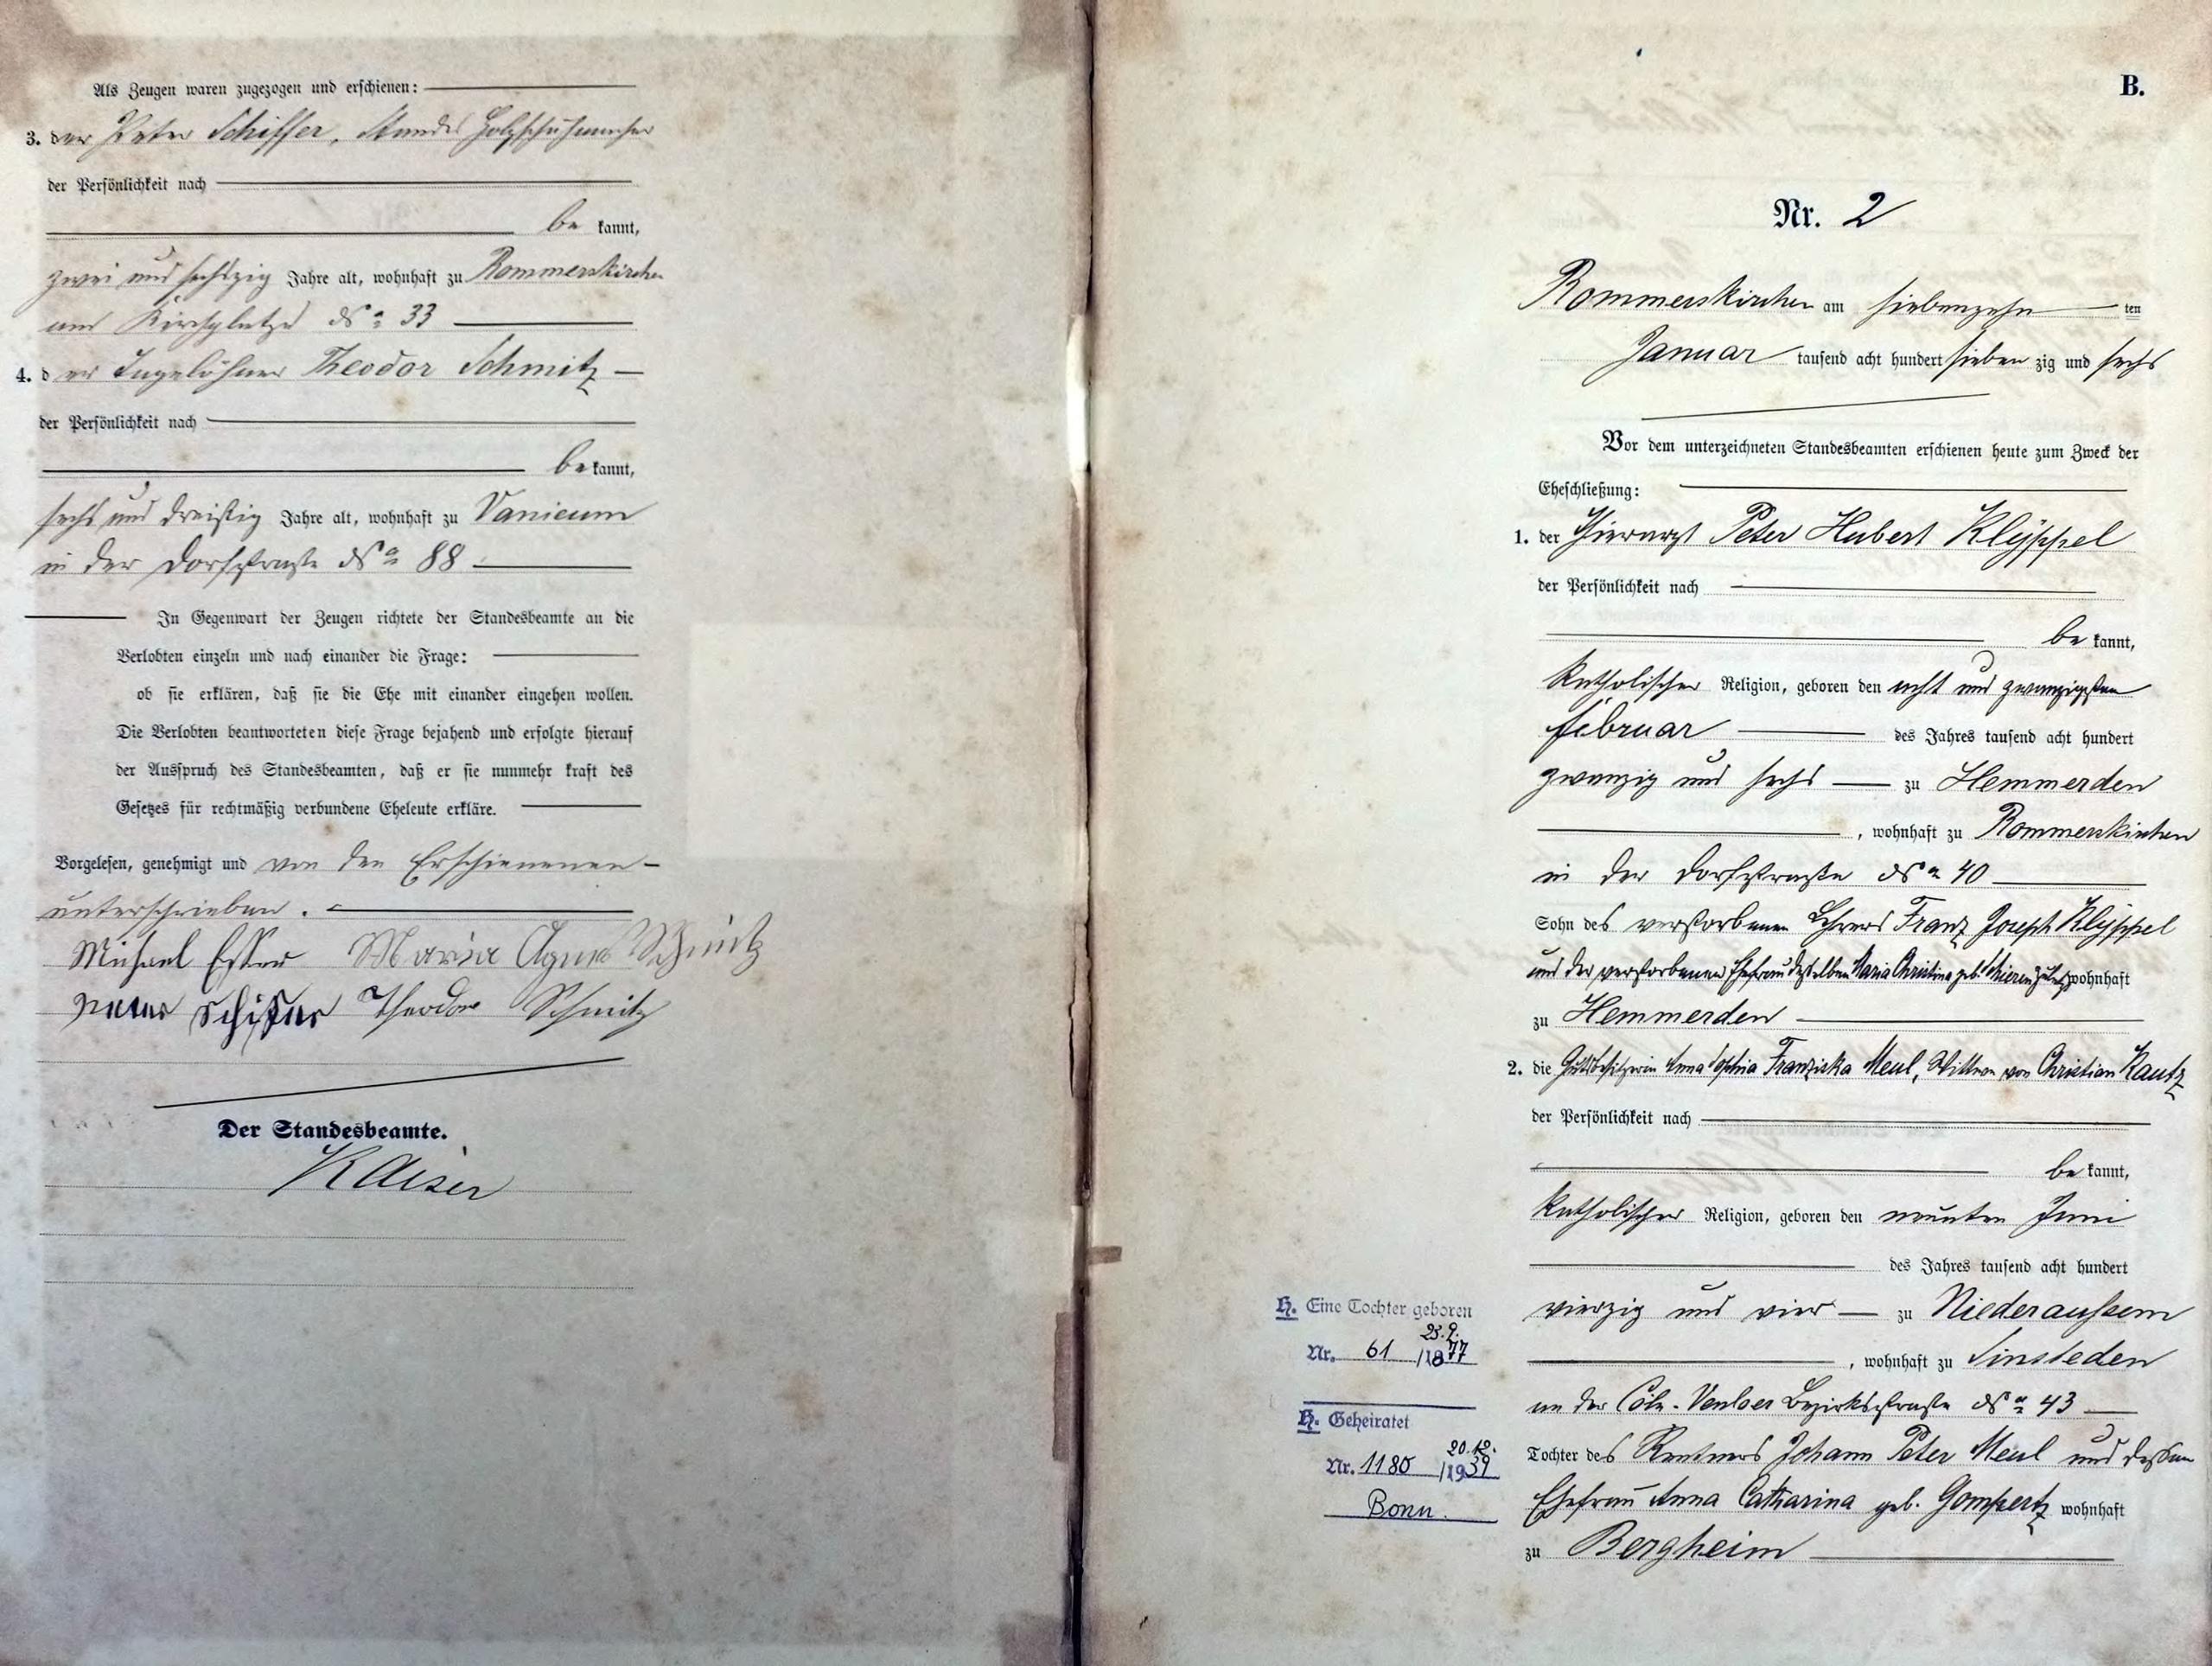 Als Zeugen waren zugezogen und erschienen:
3. der Peter Schiffer, Standes Holzschuhmacher
der Persönlichkeit nach
be kannt,
zwei und sechszig Jahre alt, wohnhaft zu Rommerskirchen
am Kirchplatze No 33
4. der Tagelöhner Theodor Schmitz
der Persönlichkeit nach
be kannt,
sechs und dreißig Jahre alt, wohnhaft zu Vanicum
in der Dorfstraße No 88
In Gegenwart der Zeugen richtete der Standesbeamte an die
Verlobten einzeln und nach einander die Frage:
ob sie erklären, daß sie die Ehe mit einander eingehen wollen.
Die Verlobten beantworteten diese Frage bejahend und erfolgte hierauf
der Ausspruch des Standesbeamten, daß er sie nunmehr kraft des
Gesetzes für rechtmäßig verbundene Eheleute erkläre.
Vorgelesen, genehmigt und von den Erschienenen
unterschrieben.
Michael Esser Maria Agnes Schmitz
Peter Schiffer Theodor Schmitz
Der Standesbeamte.
Kaiser
B.
Nr. 2
Rommerskirchen am siebenzehn ten
Januar tausend acht hundert sieben zig und sechs
Vor dem unterzeichneten Standesbeamten erschienen heute zum Zweck der
Eheschließung:
1. der Thierarzt Peter Hubert Klÿppel
der Persönlichkeit nach
be kannt,
katholischer Religion, geboren den acht und zwanzigsten
Februar des Jahres tausend acht hundert
zwanzig und sechs zu Hemmerden
, wohnhaft zu Rommerskirchen
in der Dorfstraße No 40
Sohn des verstorbenen Lehrers Franz Joseph Klÿppel
und der verstorbenen Ehefrau desselben Maria Christina geb. wohnhaft
zu Hemmerden
2. die Gutsbesitzerin Anna Sophia Franziska Meul, Wittwe von Christian Kautz
der Persönlichkeit nach
be kannt,
katholischer Religion, geboren den neunten Juni
des Jahres tausend acht hundert
vierzig und vier zu Niederaußem
, wohnhaft zu Sinsteden
an der Cöln-Venloer Bezirksstraße No 43
Tochter des Rentners Johann Peter Meul und dessen
Ehefrau Anna Catharina geb. Gompertz wohnhaft
zu Bergheim
H. Eine Tochter geboren
23.9.
Nr. 61 /1877
H. Geheiratet
20.12.
Nr. 1180 /1939
Bonn.